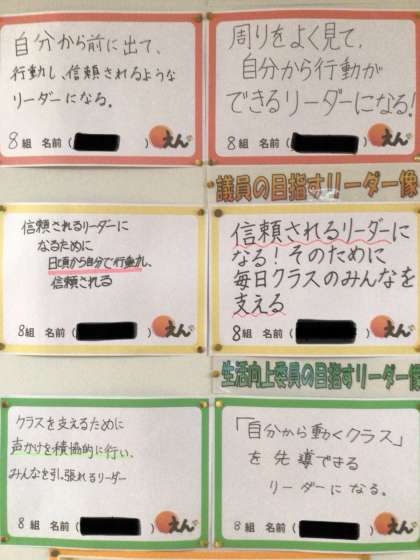 自分から前に出て、
行動し、信頼されるような
リーダーになる.
8組 名前(
えん
周りをよく見て、
自分から行動が
できるリーダーになる!
8組 名前(
えん
議員の目指すリーダー像
信頼されるリーダーに
なるために
日頃から自分で行動し、
信頼される
8組 名前(
)
えん
信頼されるリーダーに
なる!そのために
毎日クラスのみんなを
支える
8組 名前(
)
えん
生活向上委員の目指すリーダー像
クラスを支えるために
声かけを積極的に行い、
みんなを引っ張れるリーダー
8組 名前(
)
えん
「自分から動くクラス」
を先導できる
リーダーになる.
8組 名前(
)
えん